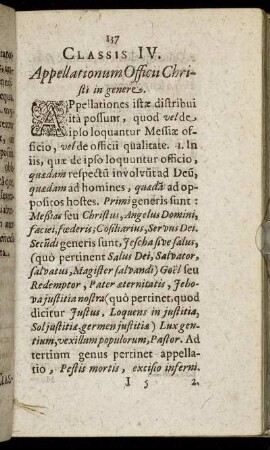 137
CLASSIS IV.
Appellationum Officii Chri-
sti in genere.
APpellationes istæ distribui
ità possunt, quod vel de
ipso loquantur Messiæ of-
ficio, vel de officii qualitate. 1. In
iis, quæ de ipso loquuntur officio,
quædam respectū involvūt ad Deū,
quædam ad homines, quædā ad op-
positos hostes. Primi generis sunt:
Messias seu Christus, Angelus Domini,
faciei, fœderis; Cosiliarius, Servus Dei.
Secūdi generis sunt, Jescha sive salus,
(quò pertinent Salus Dei, Salvator,
salvatus, Magister salvandi) Goël seu
Redemptor, Pater æternitatis, Jeho-
va justitia nostra (quò pertinet, quod
dicitur Justus, Loquens in justitia,
Sol justitiæ, germen justitiæ) Lux gen-
tium, vexillum populorum, Pastor. Ad
tertium genus pertinet appella-
tio, Pestis mortis, excisio inferni.
I 5 2.